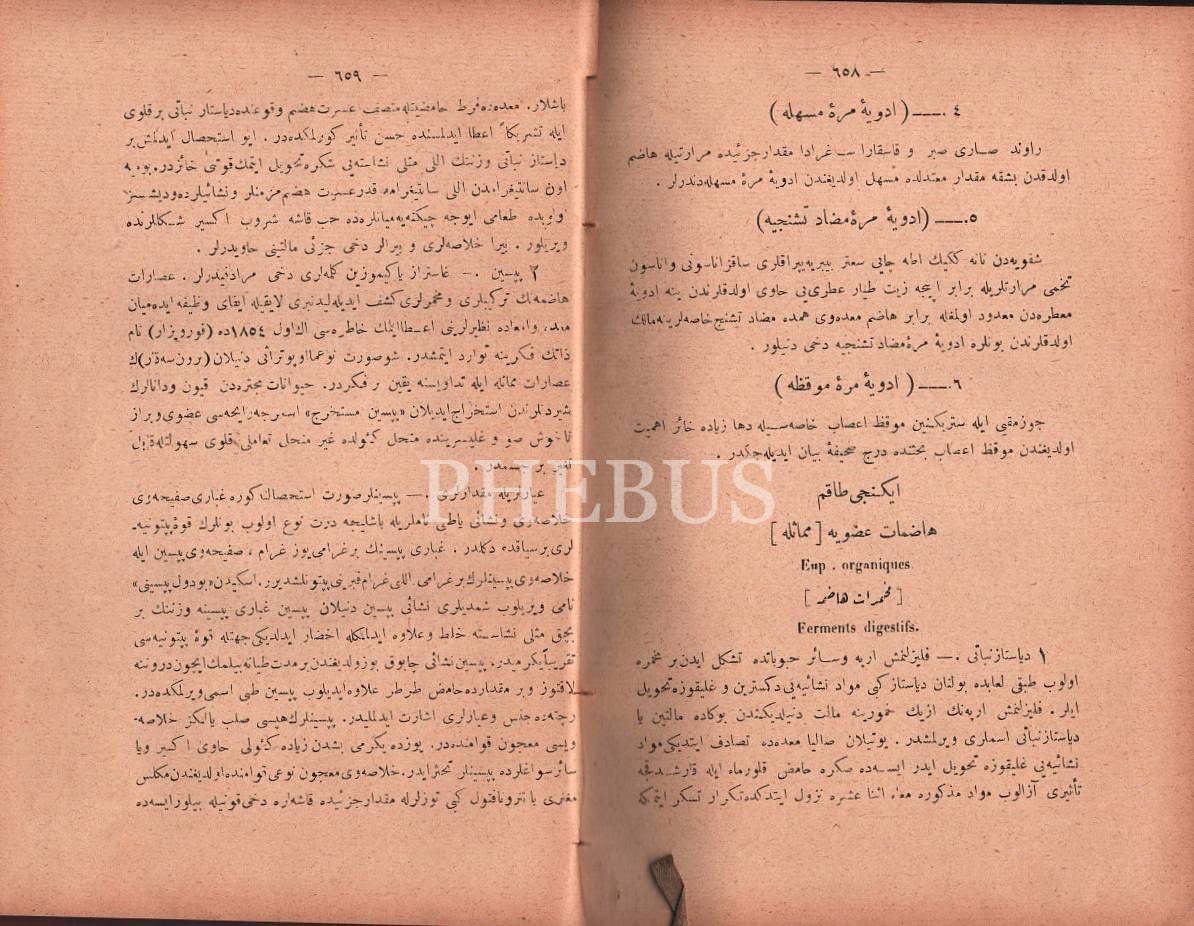 — ٦٥٨ —
٤.— ( ادويۀ مرۀ مسهله )
راوند صاری صبر و قاسقارا ساغرادا مقدار جزئیده مرارتیله هاضم
اولدقدن بشقه مقدار معتدلده مسهل اولدیغندن ادویۀ مرۀ مسهله‌دندرلر .
٥.— (ادویۀ مرۀ مضاد تشنجیه)
شفویه‌دن نانه ککیك اطه چایی سعتر بیبریه یپراقلری ساقز اناسونی واناسون
تخمی مرارتلریله برابر ایجه زیت طیار عطری‌یی حاوی اولدقلرندن ینه ادویۀ
معطره‌دن معدود اولمغله برابر هاضم معده‌وی همده مضاد تشنج خاصه‌لرینه مالك
اولدقلرندن بونلره ادویۀ مرۀ مضاد تشنجیه دخی دنیلور .
٦.— ( ادویۀ مرۀ موقظه )
جوزمقیی ایله ستریکنین موقظ اعصاب خاصه‌سیله دها زیاده حائز اهمیت
اولدیغندن موقظ اعصاب بحثنده درج صحیفۀ بیان ایدیله‌جکدر .
ایکنجی طاقم
هاضمات عضویه [ مماثله ]
Eup . organiques
[ مخمرات هاضمه ]
Ferments digestifs.
١ دیاستاز نباتی .— فلیزلنمش ارپه وسائر حبوباتده تشکل ایدن بر مخمره
اولوب طبقی لعابده بولنان دیاستاز کبی مواد نشائیه‌یی دکسترین و غلیقوزه تحویل
ایلر . فلیزلنمش ارپه‌نك ازیك خمورینه مالت دنیلدیکندن بوکاده مالتین یا
دیاستاز نباتی اسملری ویرلمشدر . یوتیلان صالیا معده‌ده تصادف ایتدیکی مواد
نشائیه‌یی غلیقوزه تحویل ایدر ایسه‌ده صکره حامض قلورماء ایله قارشدقجه
تأثیری آزالوب مواد مذکوره معاء اثنا عشره نزول ایتدکده تکرار تسکر ایتمکه
— ٦٥٩ —
باشلار . معده‌ده فرط حامضیتله متصف عسرت هضم وقوعنده دیاستاز نباتی بر قلوی
ایله تشریکاً اعطا ایدلمسنده حسن تأثیر کورلمکده‌در . ایو استحصال ایدلمش بر
دیاستاز نباتی وزننك اللی مثلی نشاسته‌یی شکره تحویل ایتمك قوتی حائزدر.
اون سانتیغرامدن اللی سانتیغرامه قدر عسرت هضم مزمنلر
طعامی ایوجه چیکنه‌یه‌میانلره‌ده حب قاشه شروب اکسیر شکللرنده
ویریلور . بیرا خلاصه‌لری و بیرالر دخی جزئی مالتینی حاویدرلر .
٢ پپسین .— غاستراز یاکیموزین کله‌لری دخی مرادفیدرلر . عصارات
هاضمه‌نك ترکیبلری و مخمرلری کشف ایدیله‌لیدنبری لایقیله ایفای وظیفه ایده‌میان
نظیرلرینی اعطا ایتمك خاطره‌سی اك اول ١٨٥٤ده (قورویزار) نام
ذاتك فکرینه توارد ایتمشدر. شو صورت نوعما اوپوتراپی دنیلان (برون سه‌قار)ك
عصارات مماثله ایله تداویسنه یقین بر فکردر. حیوانات مجتره‌دن قیون ودانالرك
استخراج ایدیلان «پپسین مستخرج» اسمر جه رایحه‌سی عضوی و بر از
ناخوش صو و غلیسرینده منحل کئولده غیر منحل تعاملی قلوی سهولتله قابل
تغیر بر جسمدر .
عیارلریله مقدارلری .— پپسینلر صورت استحصالنه کوره غباری صفیحه‌وی
خلاصه‌وی ونشائی یاطبی ناملریله باشلیجه درت نوع اولوب بونلرك قوۀ پپتونیه-
لری بر سیاقده دکلدر . غباری پپسینك بر غرامی یوز غرام ، صفیحه‌وی پپسین ایله
خلاصه‌وی پپسینلرك بر غرامی اللی غرام فبرینی پپتونلشدیرر. اسکیدن «بودول پپسینی»
نامی ویریلوب شمدیلری نشائی پپسین دنیلان پپسین غباری پپسینه وزننك بر
بچق مثلی نشاسته خلط وعلاوه ایدلمکله احضار ایدلدیکی جهتله قوۀ پپتونیه‌سی
تقریباً یکرمیدر. پپسین نشائی چابوق بوزولدیغندن بر مدت طیانه بیلمك ایچون دروننه
لاقتوز و بر مقدارده حامض طرطر علاوه ایدیلوب پپسین طبی اسمی ویرلمکده‌در.
رچته‌ده جنس وعیارلری اشارت ایدلملیدر. پپسینلرك هپسی صلب یالکز خلاصه-
ویسی معجون قوامنده‌در. یوزده یکرمی بشدن زیاده کئولی حاوی اکسیر ویا
سائر سواغلرده پپسینلر تخثر ایدر. خلاصه‌وی معجون نوعی قوامنده اولدیغندن مکلس
مغنزی یا نترونافتول کبی توزلرله مقدار جزئیده قاشه‌لره دخی قونیله بیلور ایسه‌ده
PHEBUS